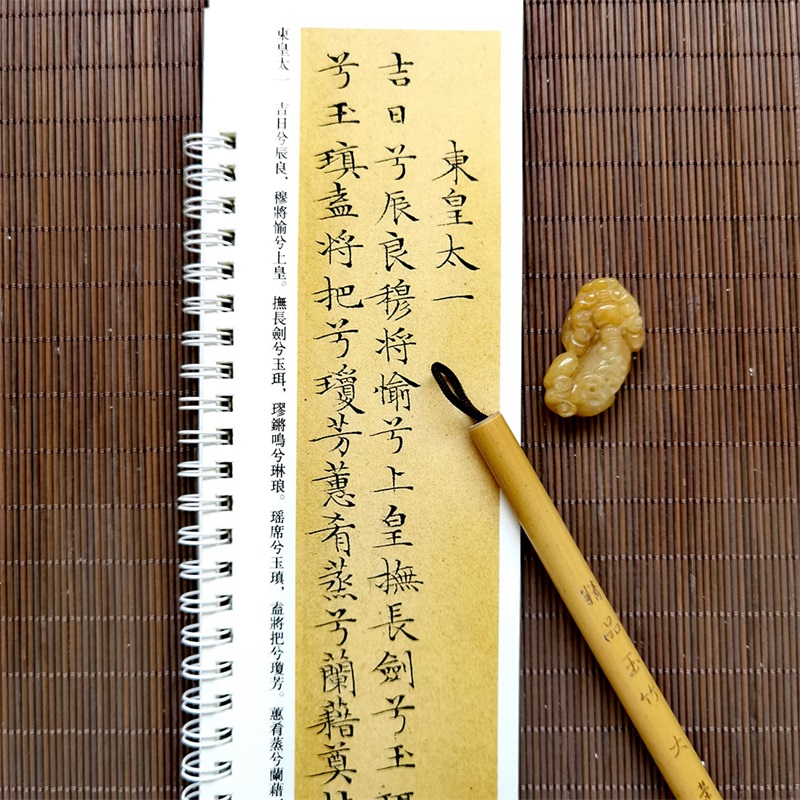 東皇太一
吉日兮辰良穆將愉兮上皇撫長劍兮玉
兮玉瑱盍將把兮瓊芳蕙肴蒸兮蘭藉奠
東皇太一 吉日兮辰良，穆將愉兮上皇。撫長劍兮玉珥，璆鏘鳴兮琳琅。瑶席兮玉瑱，盍將把兮瓊芳。蕙肴蒸兮蘭藉，
精品玉竹大